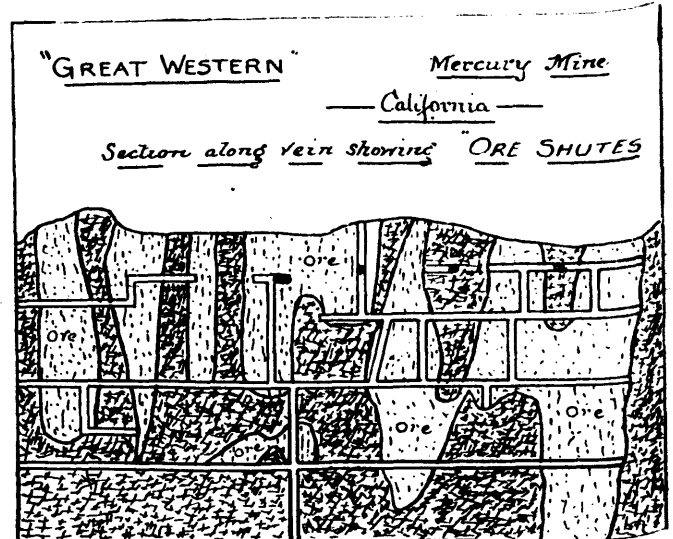 "GREAT WESTERN" Mercury Mine
California
Section along vein showing "ORE SHUTES
Ore
Ore
Ore
Ore
Or